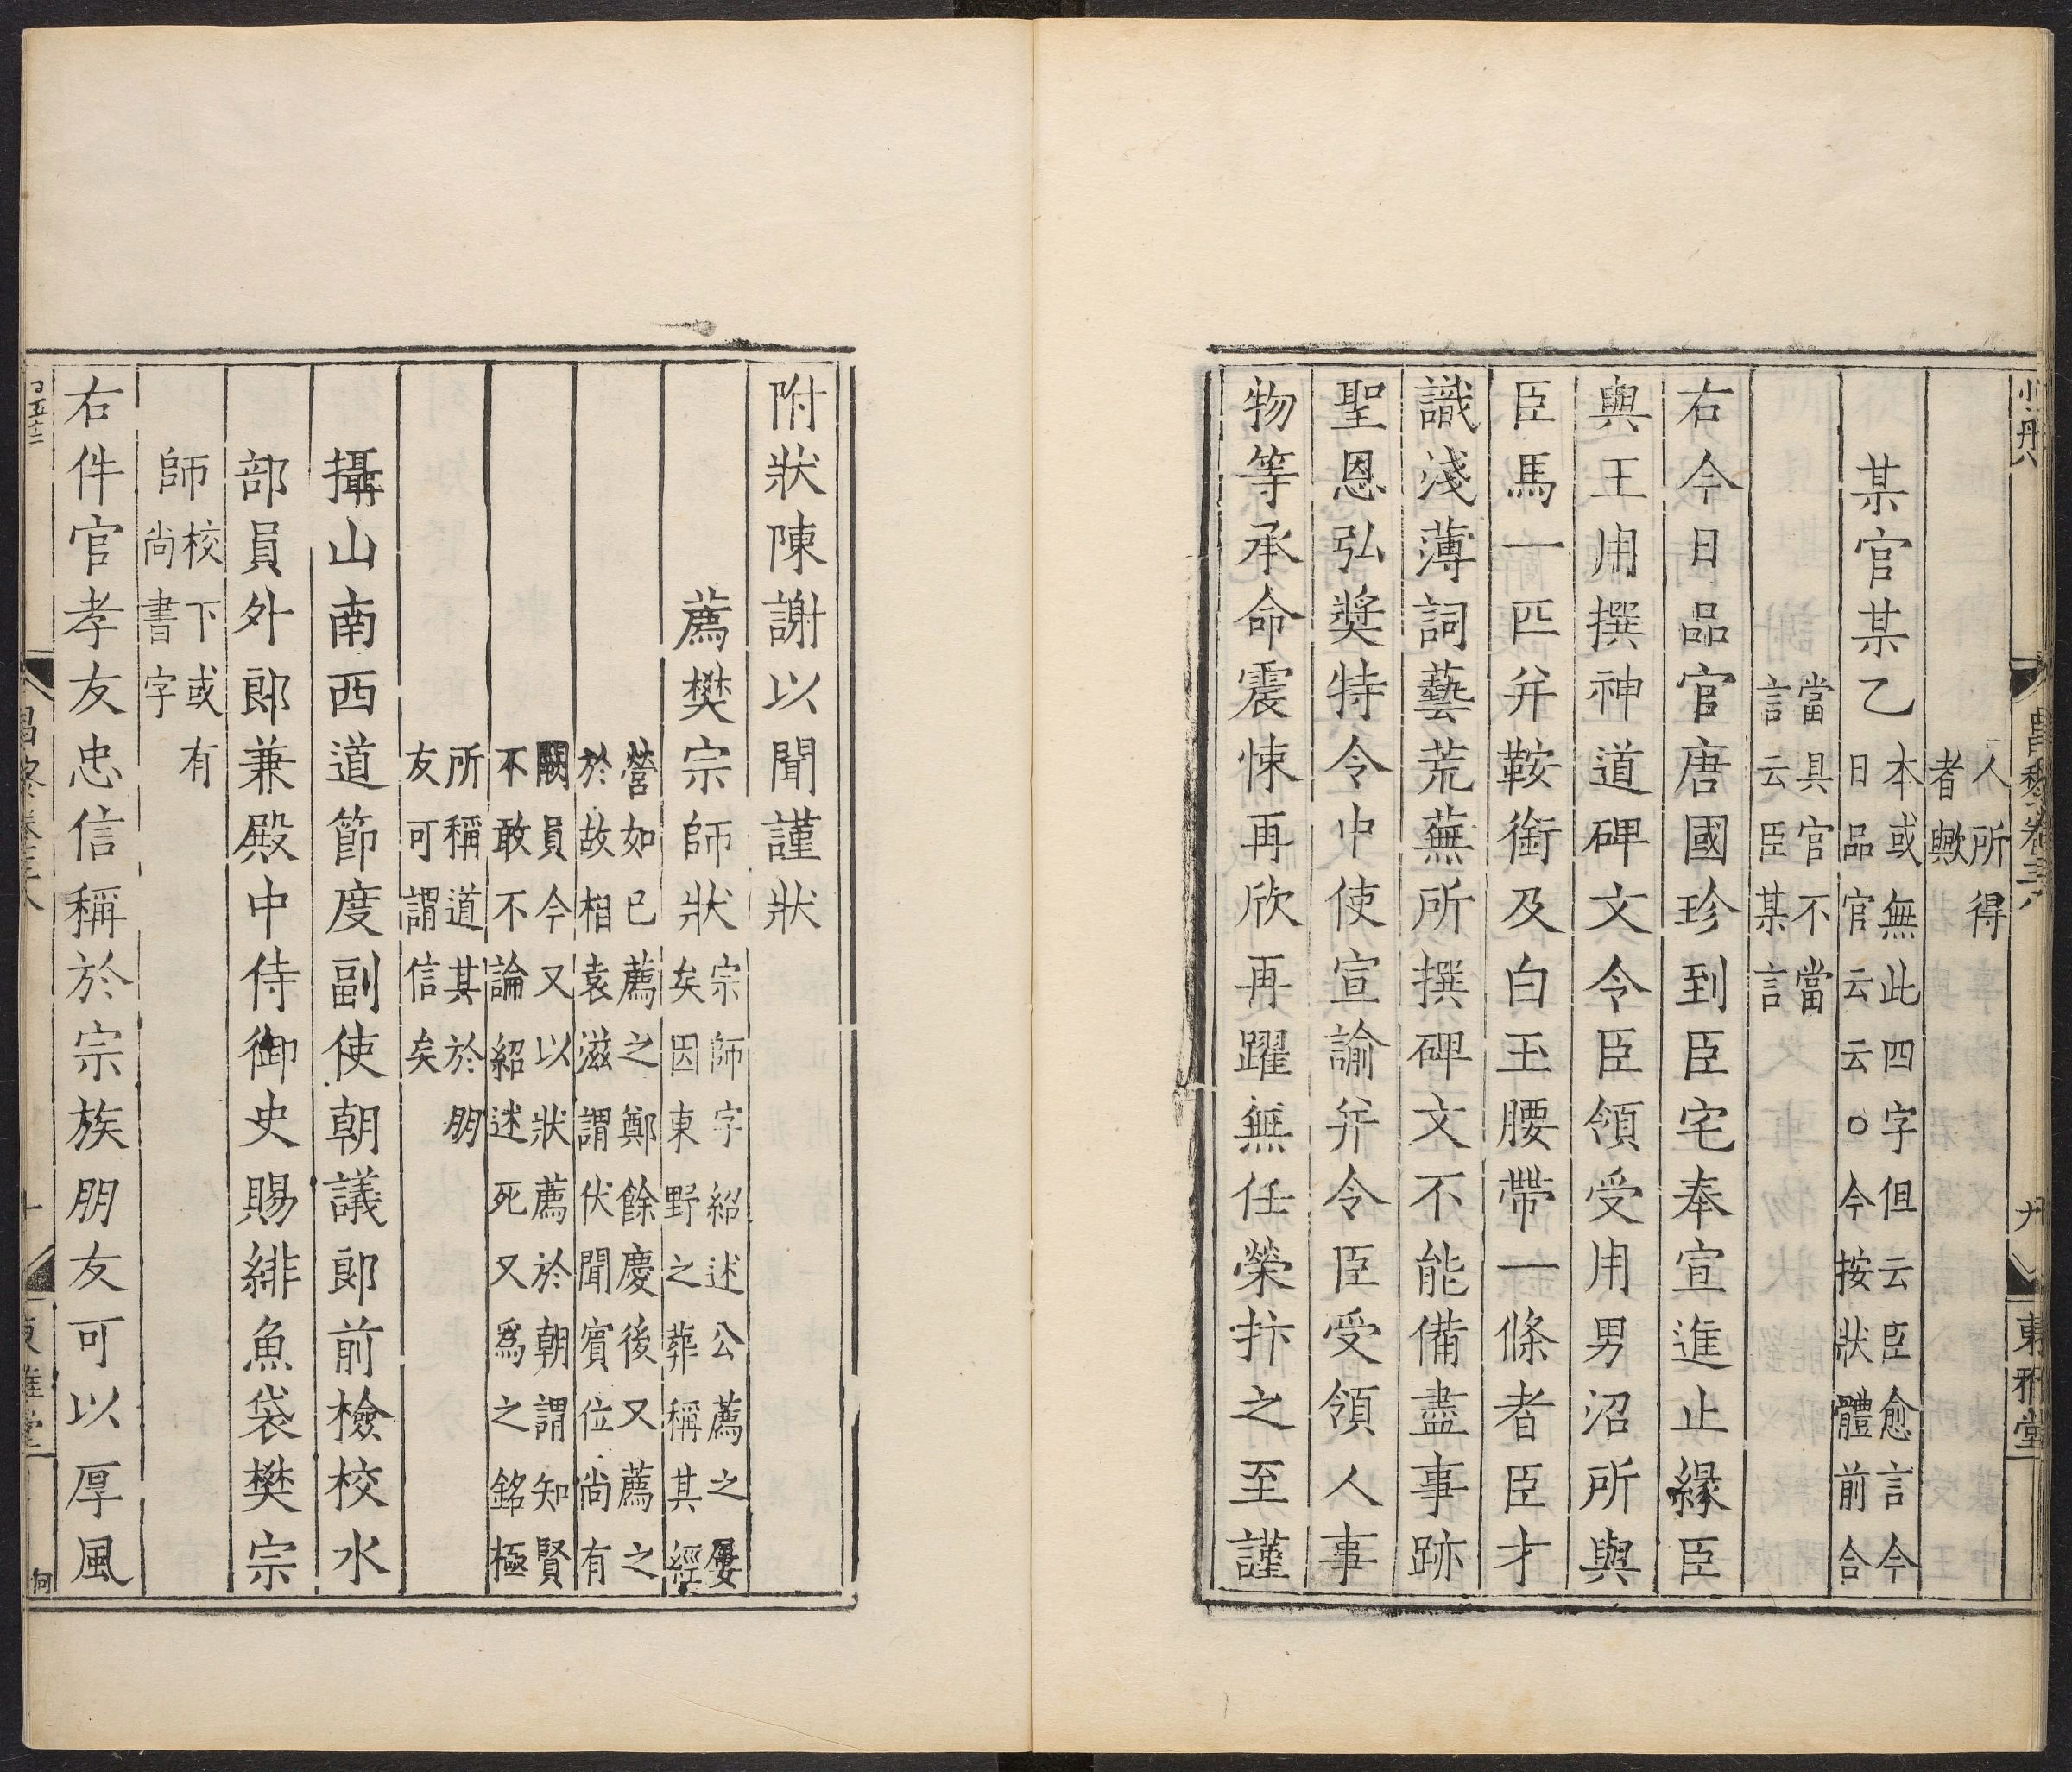 人所得
者歟
某官某乙本或無此四字但云臣愈言今
日品官云云○今按狀體前合
當具官不當
言云臣某言
右今日品官唐國珍到臣宅奉宣進止緣臣
與王用撰神道碑文令臣領受用男沼所與
臣馬一匹并鞍銜及白玉腰帶一條者臣才
識淺薄詞藝荒蕪所撰碑文不能備盡事跡
聖恩弘奬特令中使宣諭并令臣受領人事
物等承命震悚再欣再躍無任榮抃之至謹
昌黎卷三八
九
東雅堂
附狀陳謝以聞謹狀
薦樊宗師狀宗師字紹述公薦之屢
矣因東野之葬稱其經
營如已薦之鄭餘慶後又薦之
於故相袁滋謂伏聞賓位尚有
闕員今又以狀薦於朝謂知賢
不敢不論紹述死又爲之銘極
所稱道其於朋
友可謂信矣
攝山南西道節度副使朝議郎前檢校水
部員外郎兼殿中侍御史賜緋魚袋樊宗
師校下或有
尚書字
右件官孝友忠信稱於宗族朋友可以厚風
十